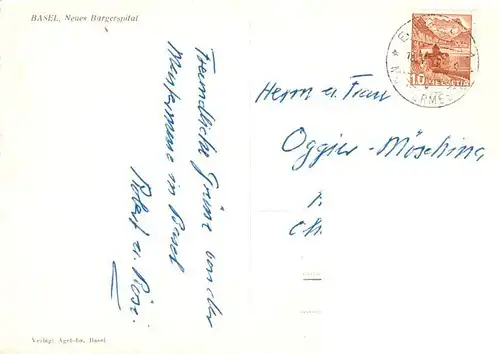 BASEL, Neues Bürgerspital
Freundliche Grüsse von der
in Basel
Robert u. Rösi
Herrn u. Frau
Oggier-Mösching
Ch
10
HELVETIA
Verlag: Agef-
Basel